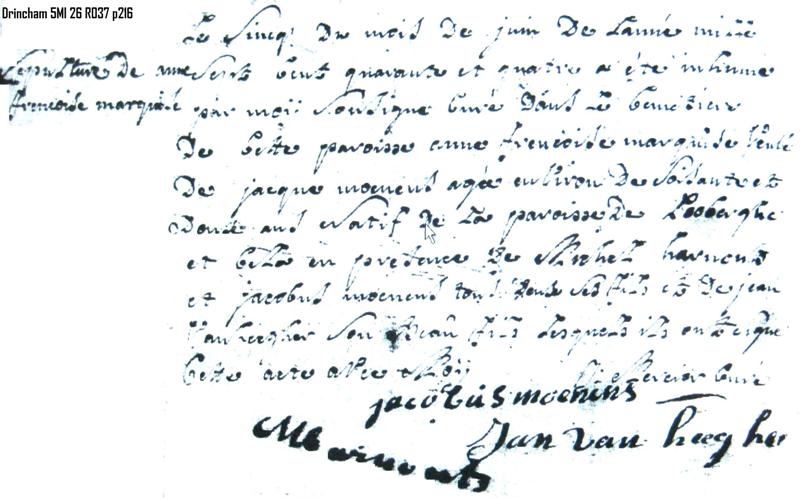 Drincham 5MI 26 R037 p216
Le sincq du mois de juin de l'anné mille
sepulture de anne
francoise marquise
sept cent quarante et quatre a été inhumé
par moij sousigné curé dans le cemetiere
de cette paroisse anne francoise marquise veuve
de jacque moenens agée environ de soisante et
douse ans natif de la paroisse de Looberghe
et cela en presence de Michel harnouts
et jacobus moenens tous deux ses fils et de jean
vanheegher son beau fils lesquels ils ont signé
cette acte avec Moij
Mercier curé
jacobus moenens
Jan van heeghe
M harnouts